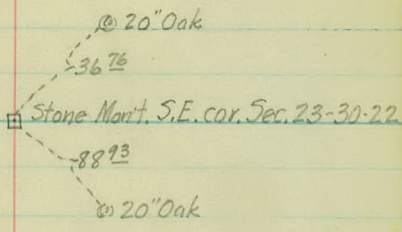 20" Oak
36 76
Stone Mon't. S.E. cor. Sec. 23-30-22
88 93
20" Oak